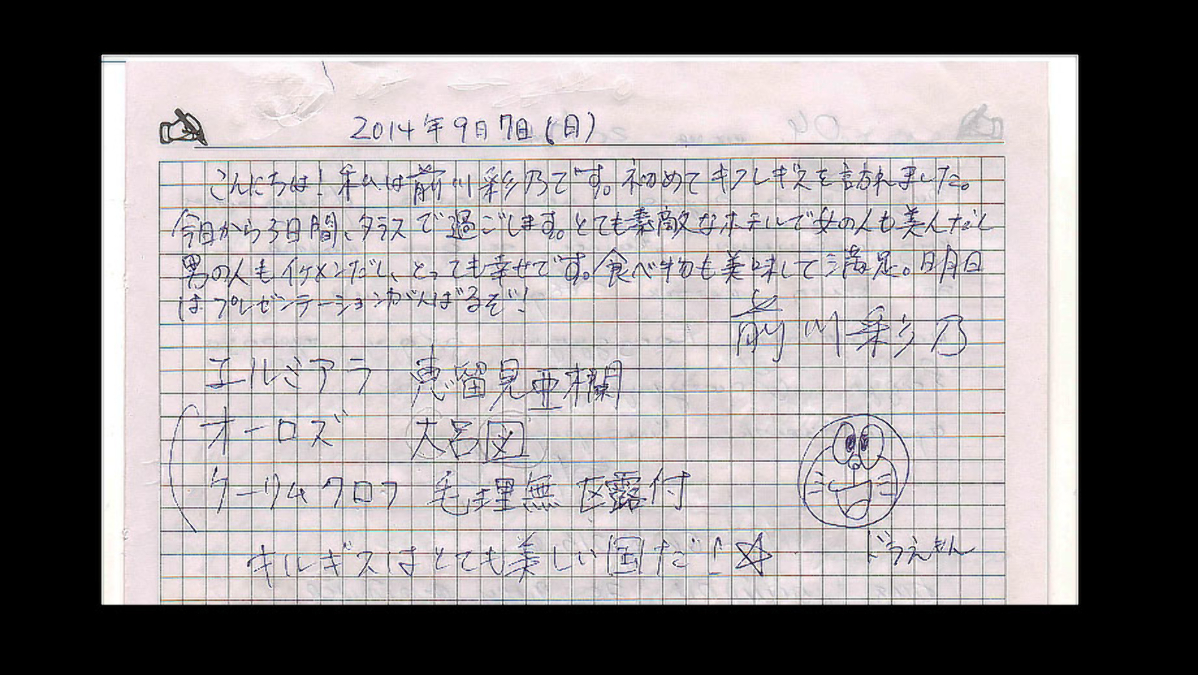 2014年9月7日(日)
こんにちは!私は前川彩乃です。初めてキルギスを訪れました。
今日から3日間、タラスで過ごします。とても素敵なホテルで女の人も美人だし
男の人もイケメンだし、とっても幸せです。食べ物も美味して満足。明日
はプレゼンテーションがんばるぞ!
前川彩乃
エルミアラ 恵留見亜欄
オーロズ 大呂図
クーリムクロフ 毛理無 区露付
キルギスはとても美しい国だ!☆
ドラえもん